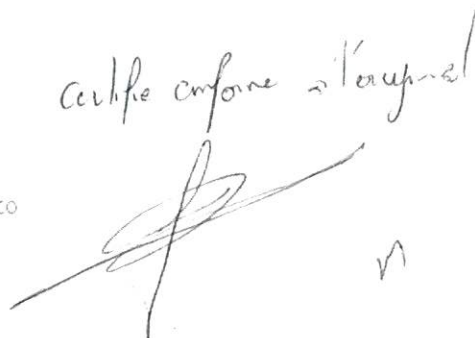 Certifie conforme à l'original
co